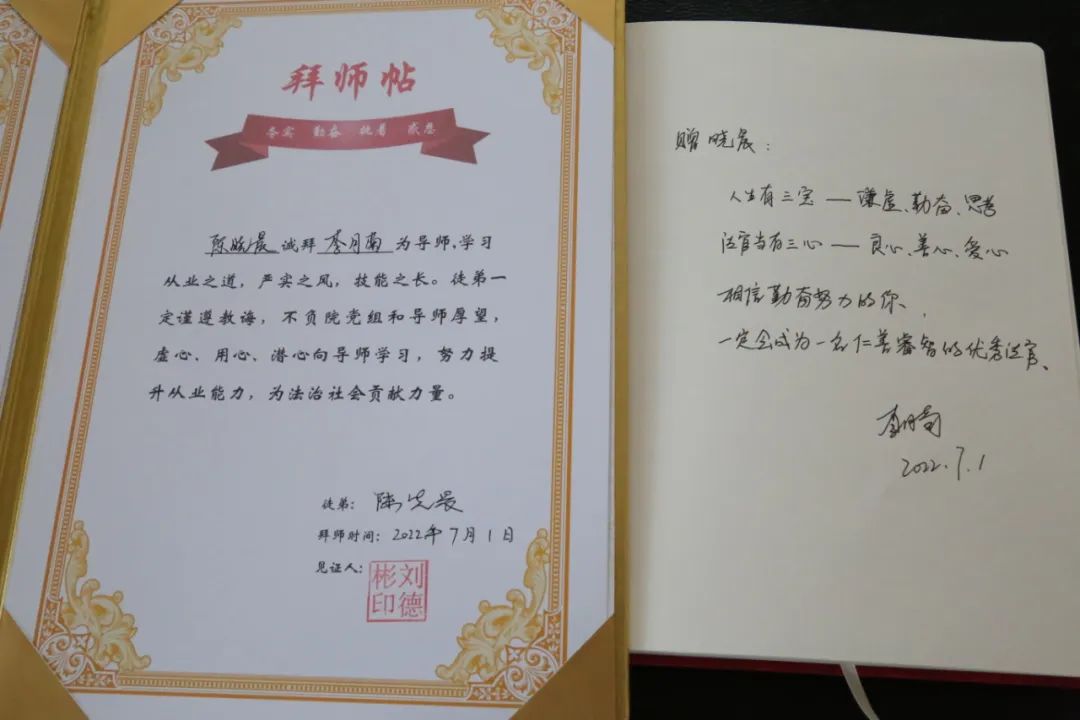 拜师帖
务实 勤奋 执着 感恩
陈晓晨 诚拜 李月南 为导师,学习
从业之道，严实之风，技能之长。徒弟一
定谨遵教诲，不负院党组和导师厚望，
虚心、用心、潜心向导师学习，努力提
升从业能力，为法治社会贡献力量。
徒弟：陈晓晨
拜师时间：2022年7月1日
见证人：
刘德彬印
赠晓晨：
人生有三宝——谦虚、勤奋、思考
法官当有三心——良心、善心、爱心
相信勤奋努力的你、
一定会成为一名仁善睿智的优秀法官、
李月南
2022.7.1